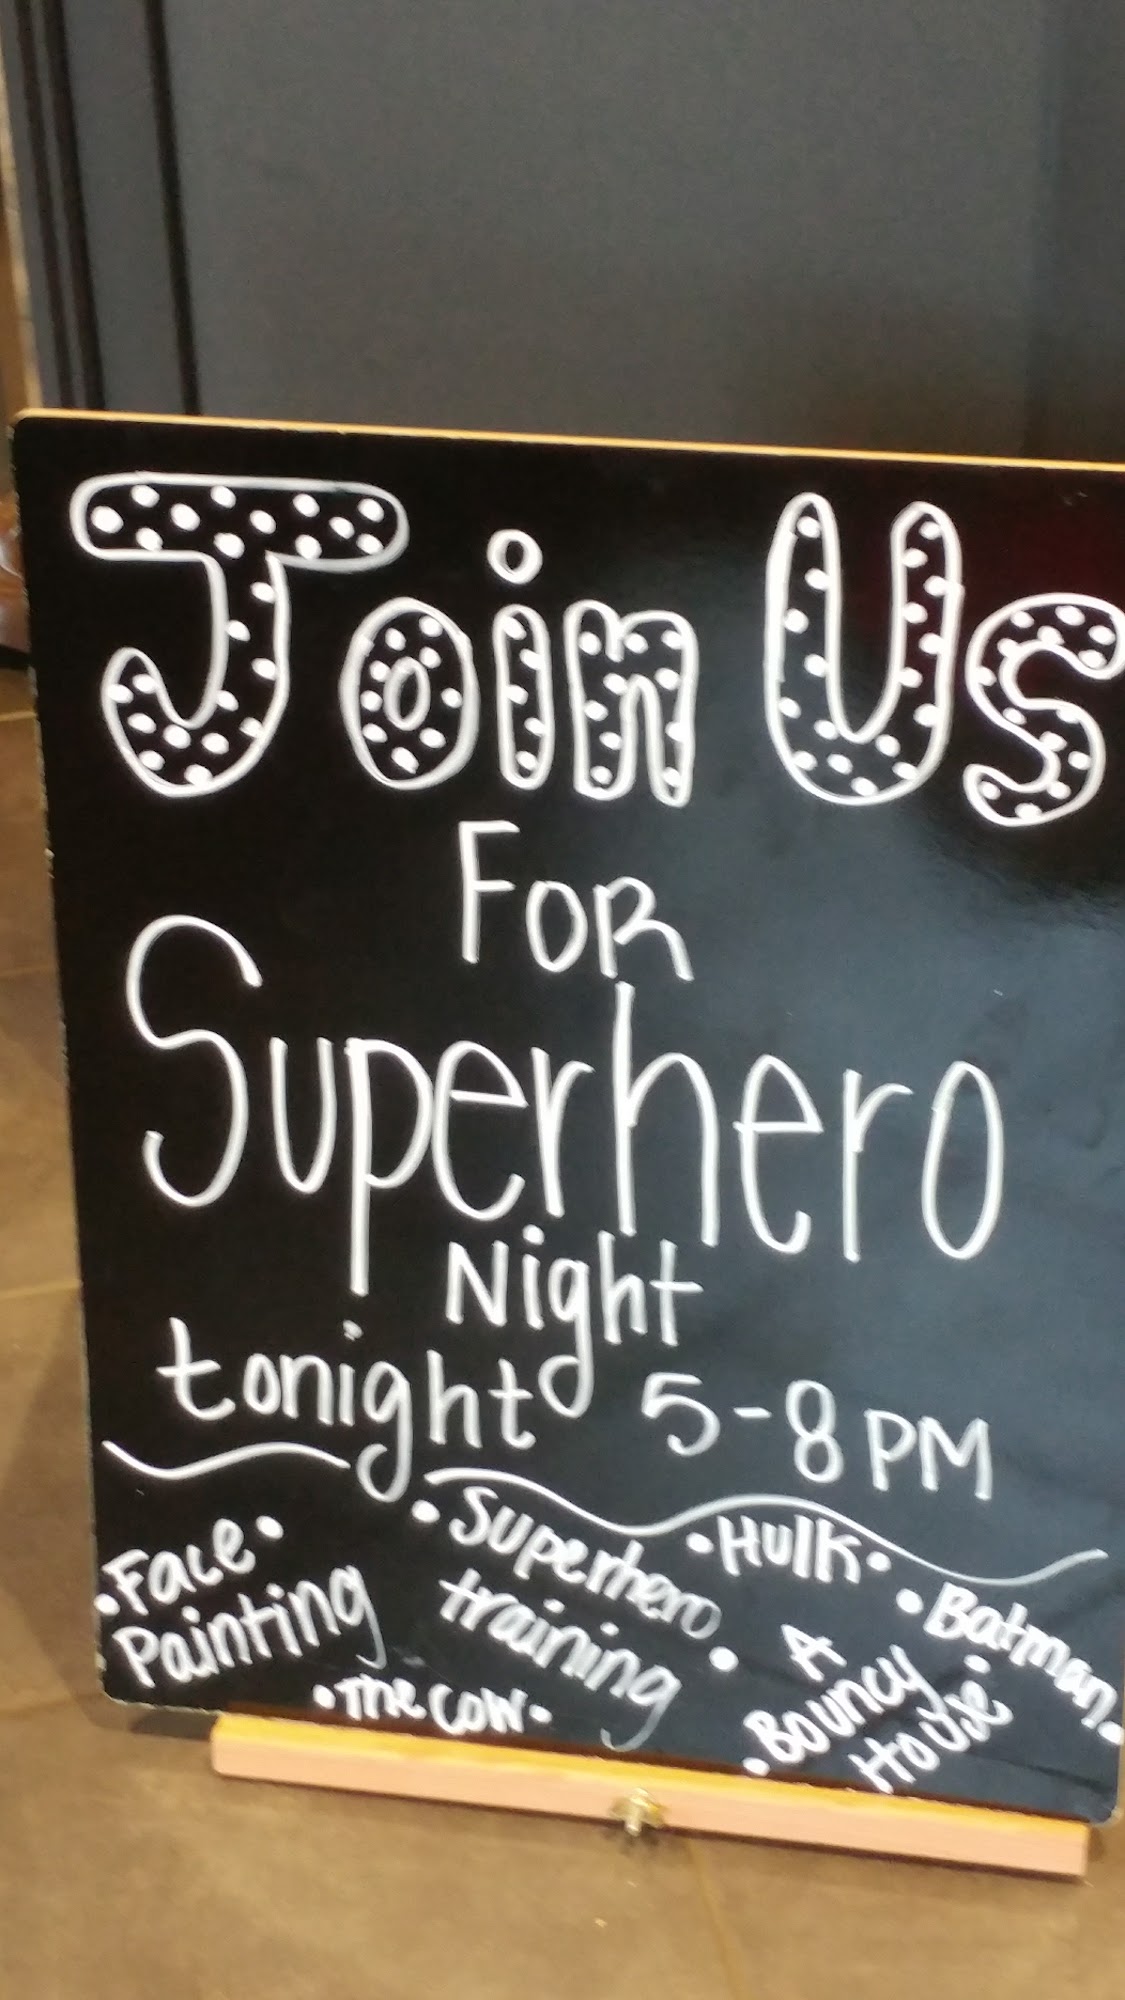 Join Us
FOR
Superhero
Night
tonight 5-8 PM
• Face •
Painting
• Superhero
training •
• Hulk •
• Batman •
• The COW •
A
• Bouncy
House •